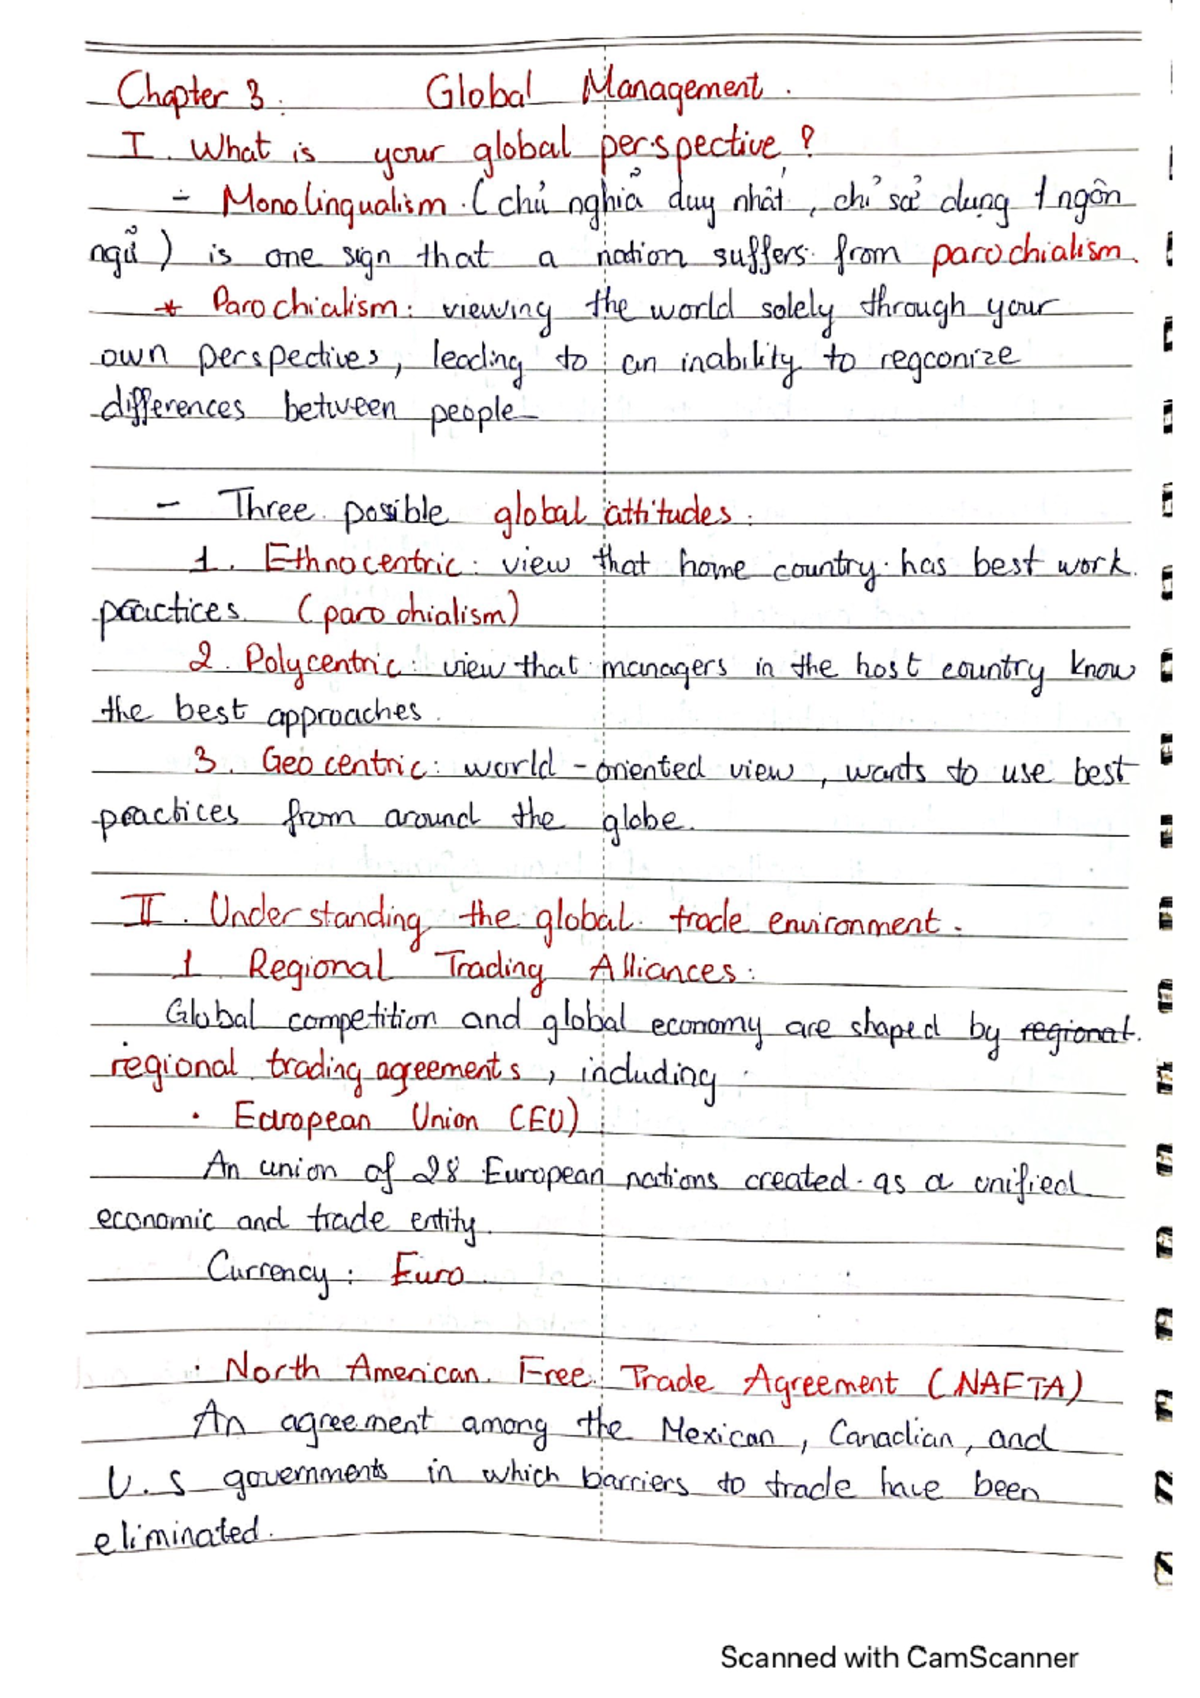 Chapter 3: Global Management.
I. What is your global perspective?
- Monolingualism (chủ nghĩa duy nhất, chỉ sử dụng 1 ngôn
ngữ) is one sign that a nation suffers from parochialism.
* Parochialism: viewing the world solely through your
own perspectives, leading to an inability to regconize
differences between people
- Three possible global attitudes:
1. Ethnocentric: view that home country has best work
practices (parochialism)
2. Polycentric: view that managers in the host country know
the best approaches.
3. Geocentric: world-oriented view, wants to use best
practices from around the globe.
II. Understanding the global trade environment.
1 Regional Trading Alliances:
Global competition and global economy are shaped by regional
regional trading agreements, including
• European Union (EU)
An union of 28 European nations created as a unified
economic and trade entity.
Currency: Euro
• North American Free Trade Agreement (NAFTA)
An agreement among the Mexican, Canadian, and
U.S governments in which barriers to trade have been
eliminated.
Scanned with CamScanner